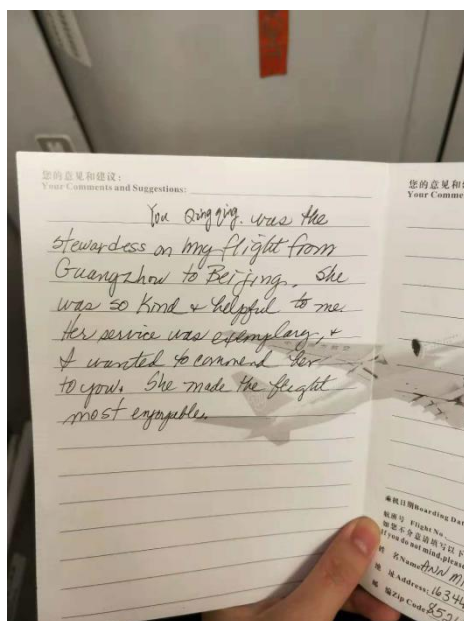 您的意见和建议：
Your Comments and Suggestions:
You Qingqing. was the
stewardess on my flight from
Guangzhou to Beijing. She
was so kind & helpful to me.
Her service was exemplary, &
I wanted to commend her
to you. She made the flight
most enjoyable.
您的意见和
Your Comme
乘机日期Boarding Dat
航班号 Flight No.
如您不介意请填写以下
If you do not mind, please
姓 名Name: ANN
地 址Address: 1634
邮 编Zip Code: 852